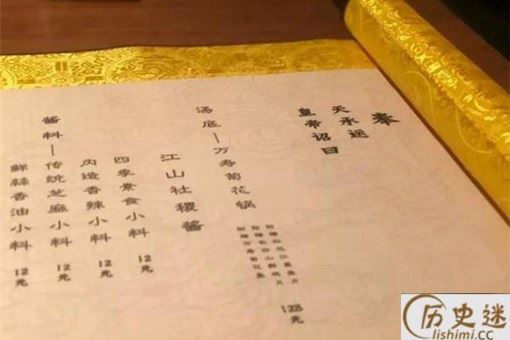 奉
天承运
皇帝诏曰
汤底—万寿菊花锅
128元
江山社稷酱
四季素食小料 12元
内造香辣小料 12元
酱料—传统芝麻小料 12元
鲜蒜香油小料 12元
历史迷
lishimi.cc